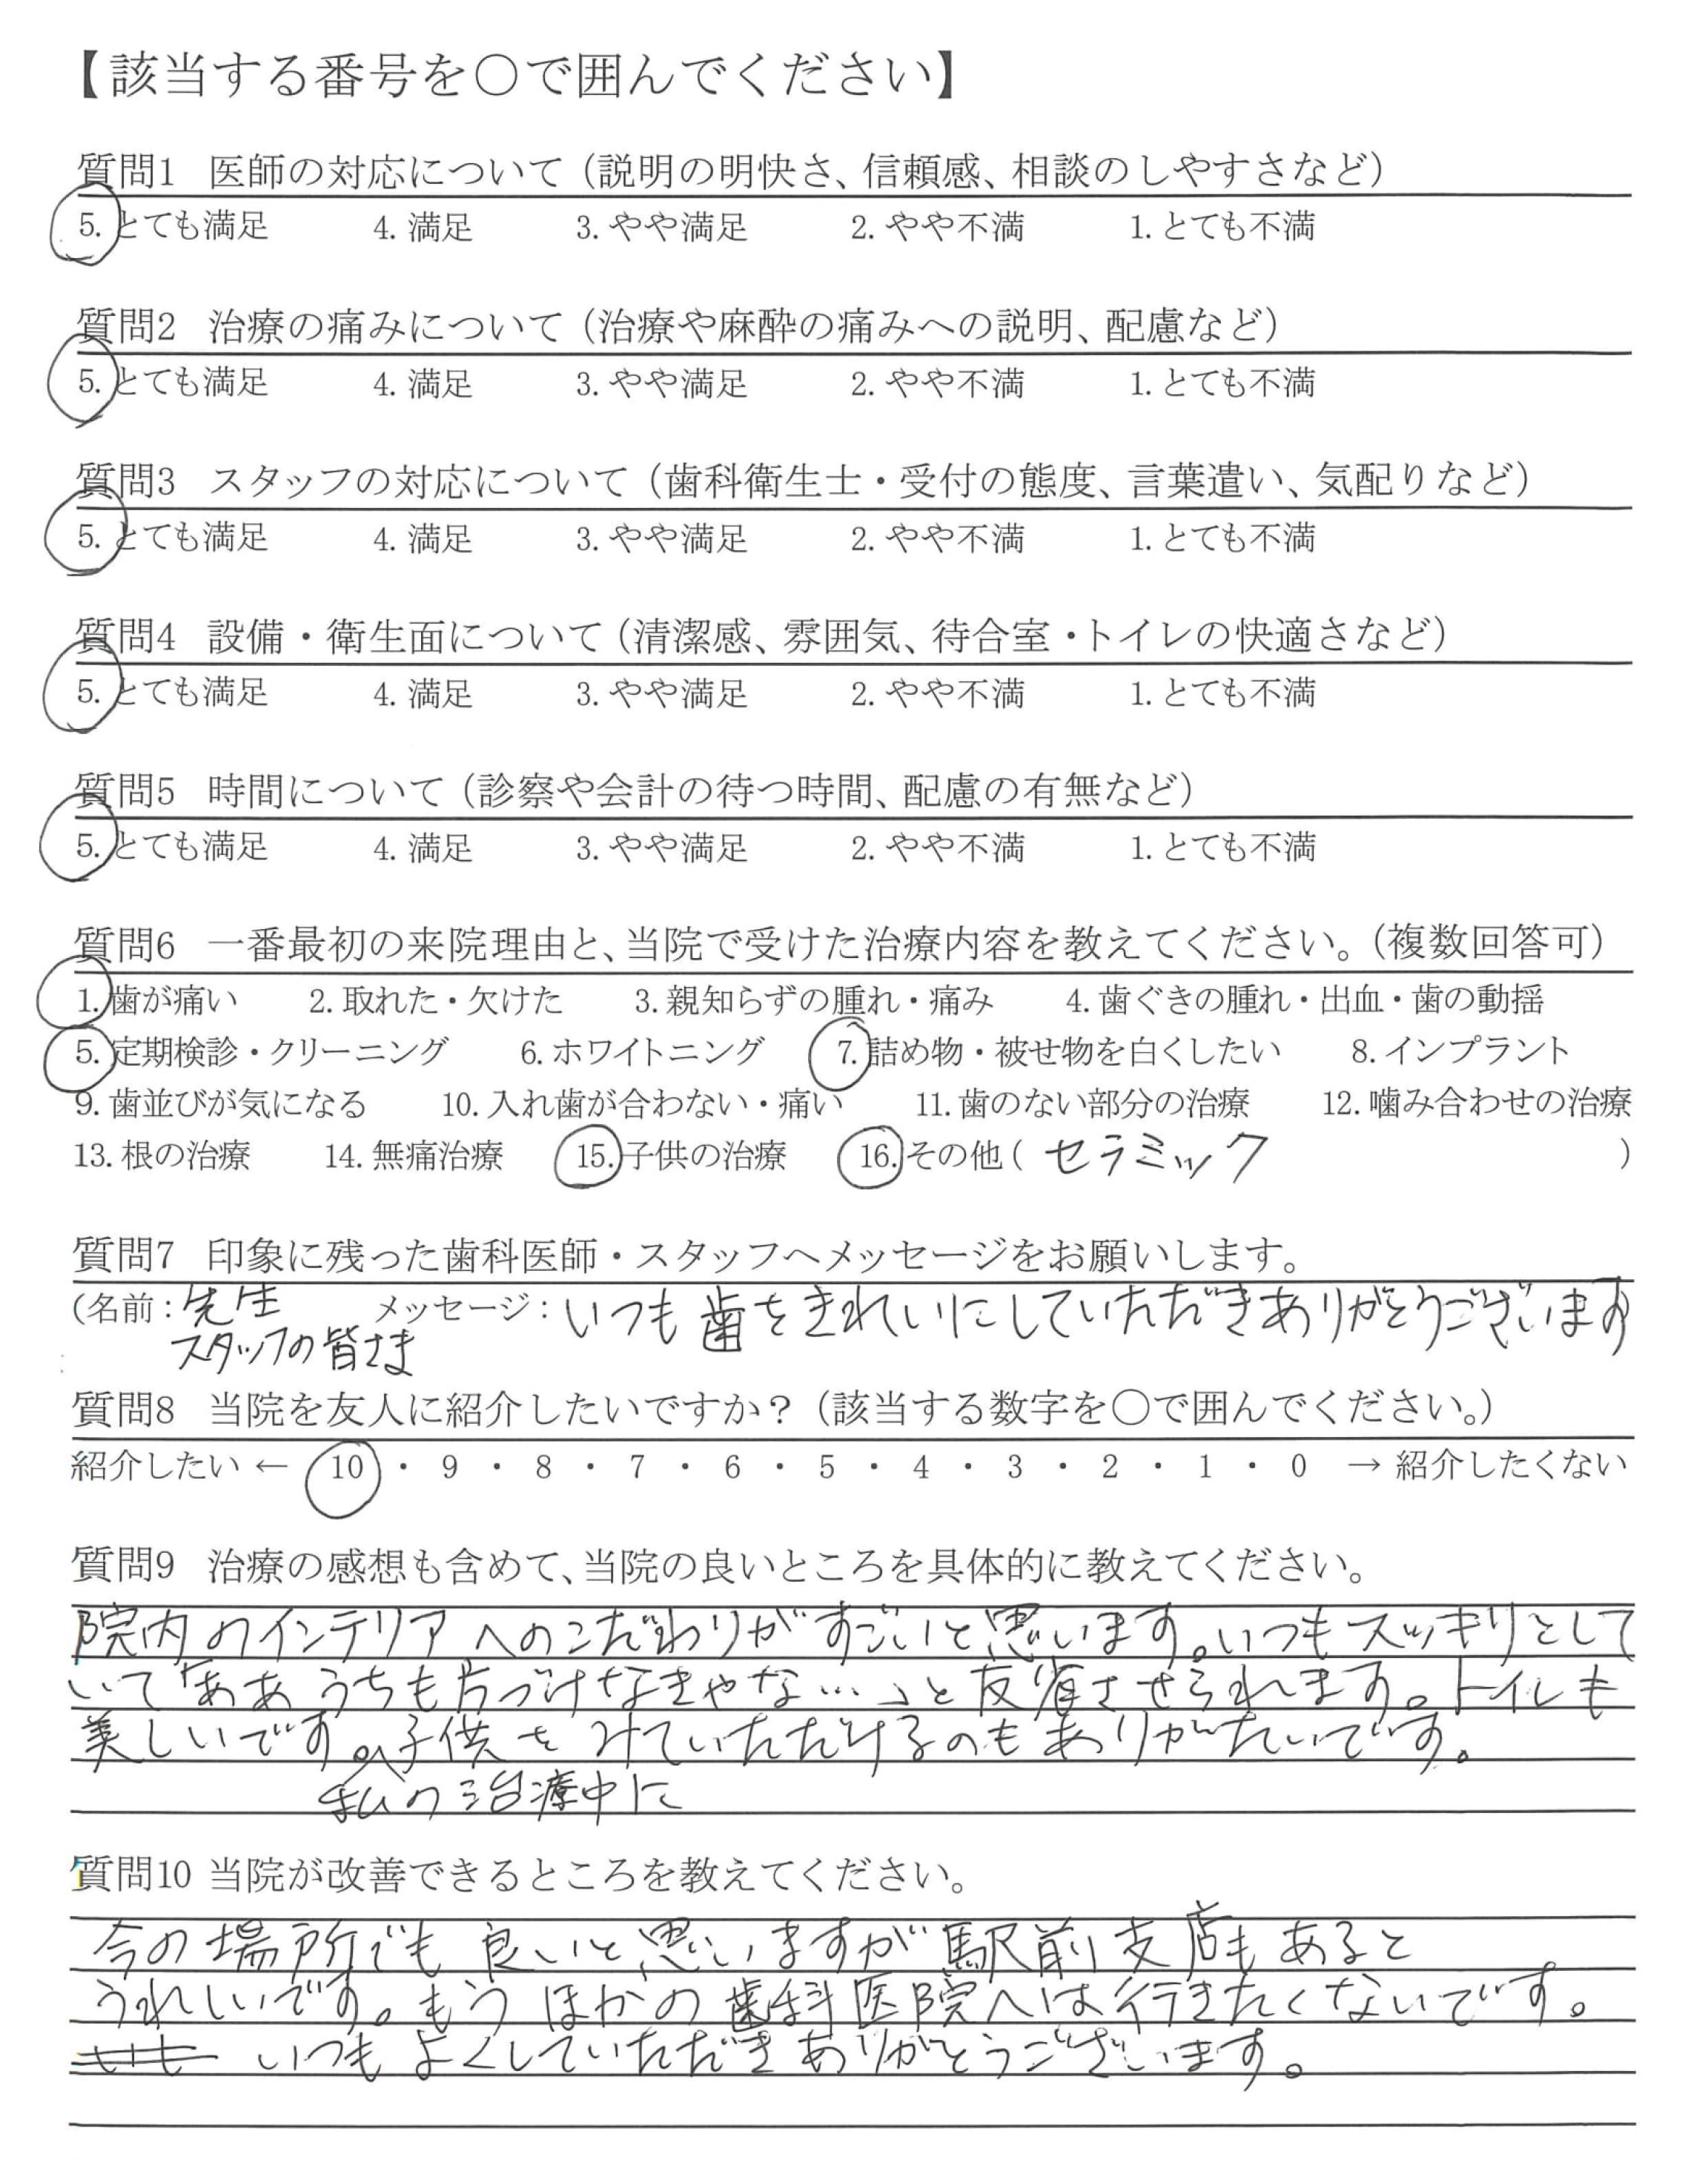 【該当する番号を〇で囲んでください】
質問1 医師の対応について（説明の明快さ、信頼感、相談のしやすさなど）
5. とても満足 4. 満足 3. やや満足 2. やや不満 1. とても不満
質問2 治療の痛みについて（治療や麻酔の痛みへの説明、配慮など）
5. とても満足 4. 満足 3. やや満足 2. やや不満 1. とても不満
質問3 スタッフの対応について（歯科衛生士・受付の態度、言葉遣い、気配りなど）
5. とても満足 4. 満足 3. やや満足 2. やや不満 1. とても不満
質問4 設備・衛生面について（清潔感、雰囲気、待合室・トイレの快適さなど）
5. とても満足 4. 満足 3. やや満足 2. やや不満 1. とても不満
質問5 時間について（診察や会計の待つ時間、配慮の有無など）
5. とても満足 4. 満足 3. やや満足 2. やや不満 1. とても不満
質問6 一番最初の来院理由と、当院で受けた治療内容を教えてください。（複数回答可）
1. 歯が痛い 2. 取れた・欠けた 3. 親知らずの腫れ・痛み 4. 歯ぐきの腫れ・出血・歯の動揺
5. 定期検診・クリーニング 6. ホワイトニング 7. 詰め物・被せ物を白くしたい 8. インプラント
9. 歯並びが気になる 10. 入れ歯が合わない・痛い 11. 歯のない部分の治療 12. 噛み合わせの治療
13. 根の治療 14. 無痛治療 15. 子供の治療 16. その他（ セラミック ）
質問7 印象に残った歯科医師・スタッフへメッセージをお願いします。
（名前：先生 メッセージ：いつも歯をきれいにしていただきありがとうございます
スタッフの皆さま
質問8 当院を友人に紹介したいですか？（該当する数字を〇で囲んでください。）
紹介したい ← 10 ・ 9 ・ 8 ・ 7 ・ 6 ・ 5 ・ 4 ・ 3 ・ 2 ・ 1 ・ 0 → 紹介したくない
質問9 治療の感想も含めて、当院の良いところを具体的に教えてください。
院内のインテリアへのこだわりがすごいと思います。いつもスッキリとして
いて「ああ うちも片づけなきゃな…」と反省させられます。トイレも
美しいです。子供をみていただけるのもありがたいです。
私の治療中に
質問10 当院が改善できるところを教えてください。
今の場所でも良いと思いますが駅前支店もあると
うれしいです。もう ほかの歯科医院へは行きたくないです。
いつも よくしていただき ありがとうございます。